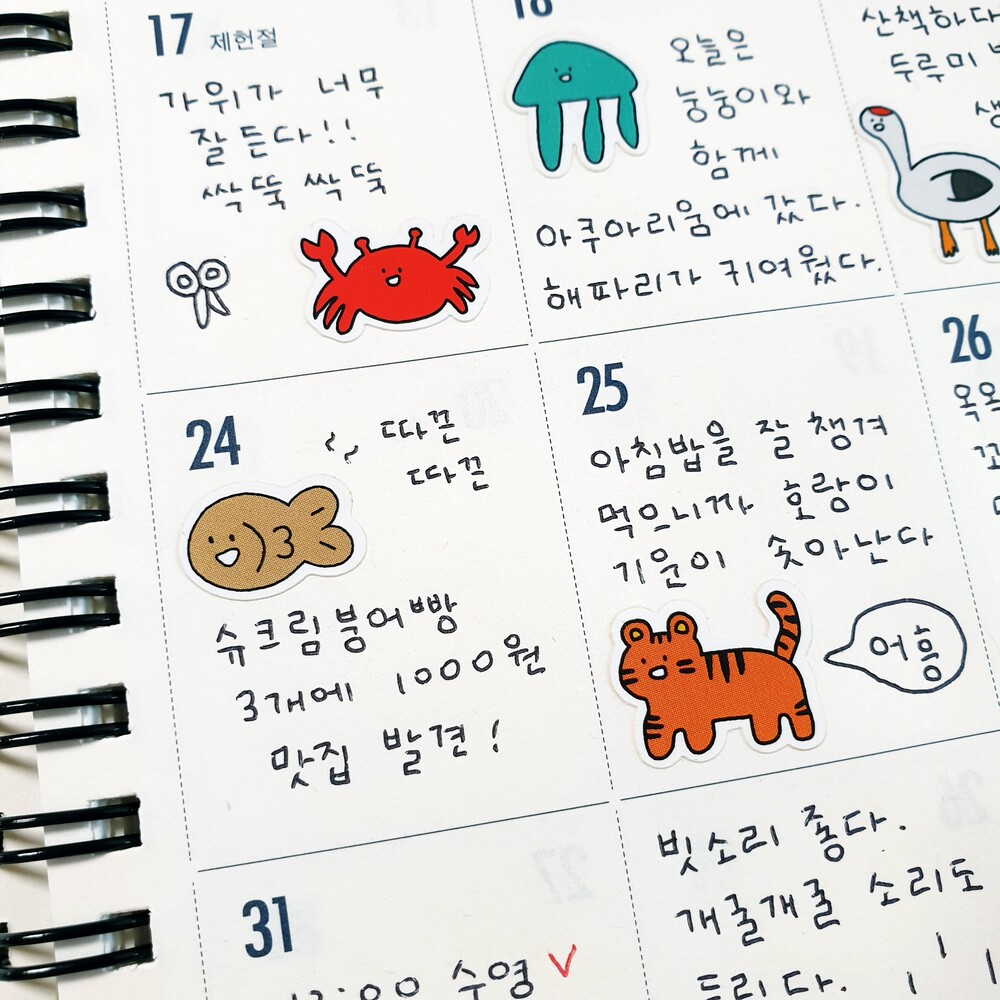 17 제헌절
가위가 너무
잘 든다!!
싹뚝 싹뚝
18
오늘은
눙눙이와
함께
아쿠아리움에 갔다.
해파리가 귀여웠다.
산책하다
두루미
24
따끈
따끈
슈크림붕어빵
3개에 1000원
맛집 발견!
25
아침밥을 잘 챙겨
먹으니까 호랑이
기운이 솟아난다
어흥
26
31
수영 V
빗소리 좋다.
개굴개굴 소리도
들리다.